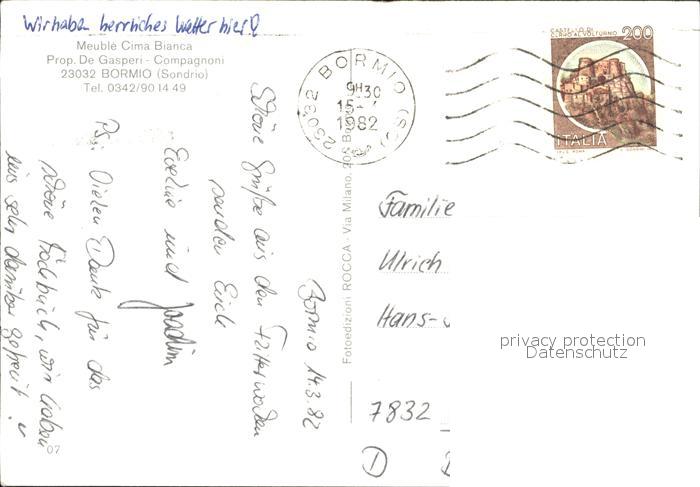 Wir haben herrliches Wetter hier!
Meublé Cima Bianca
Prop. De Gasperi - Compagnoni
23032 BORMIO (Sondrio)
Tel. 0342/90 14 49
Bormio 14.3.82
Schöne Grüße aus den Flitterwochen
senden Euch
Eveline und Joachim
Ps: Vielen Dank für das
schöne Kochbuch, wir haben
uns sehr darüber gefreut.
07
Fotoedizioni ROCCA - Via Milano, 20
23032 BORMIO (SO)
9H30
15-
1982
CASTELLO DI
CERRO AL VOLTURNO
200
ITALIA
Familie
Ulrich
Hans-
7832
D
privacy protection
Datenschutz